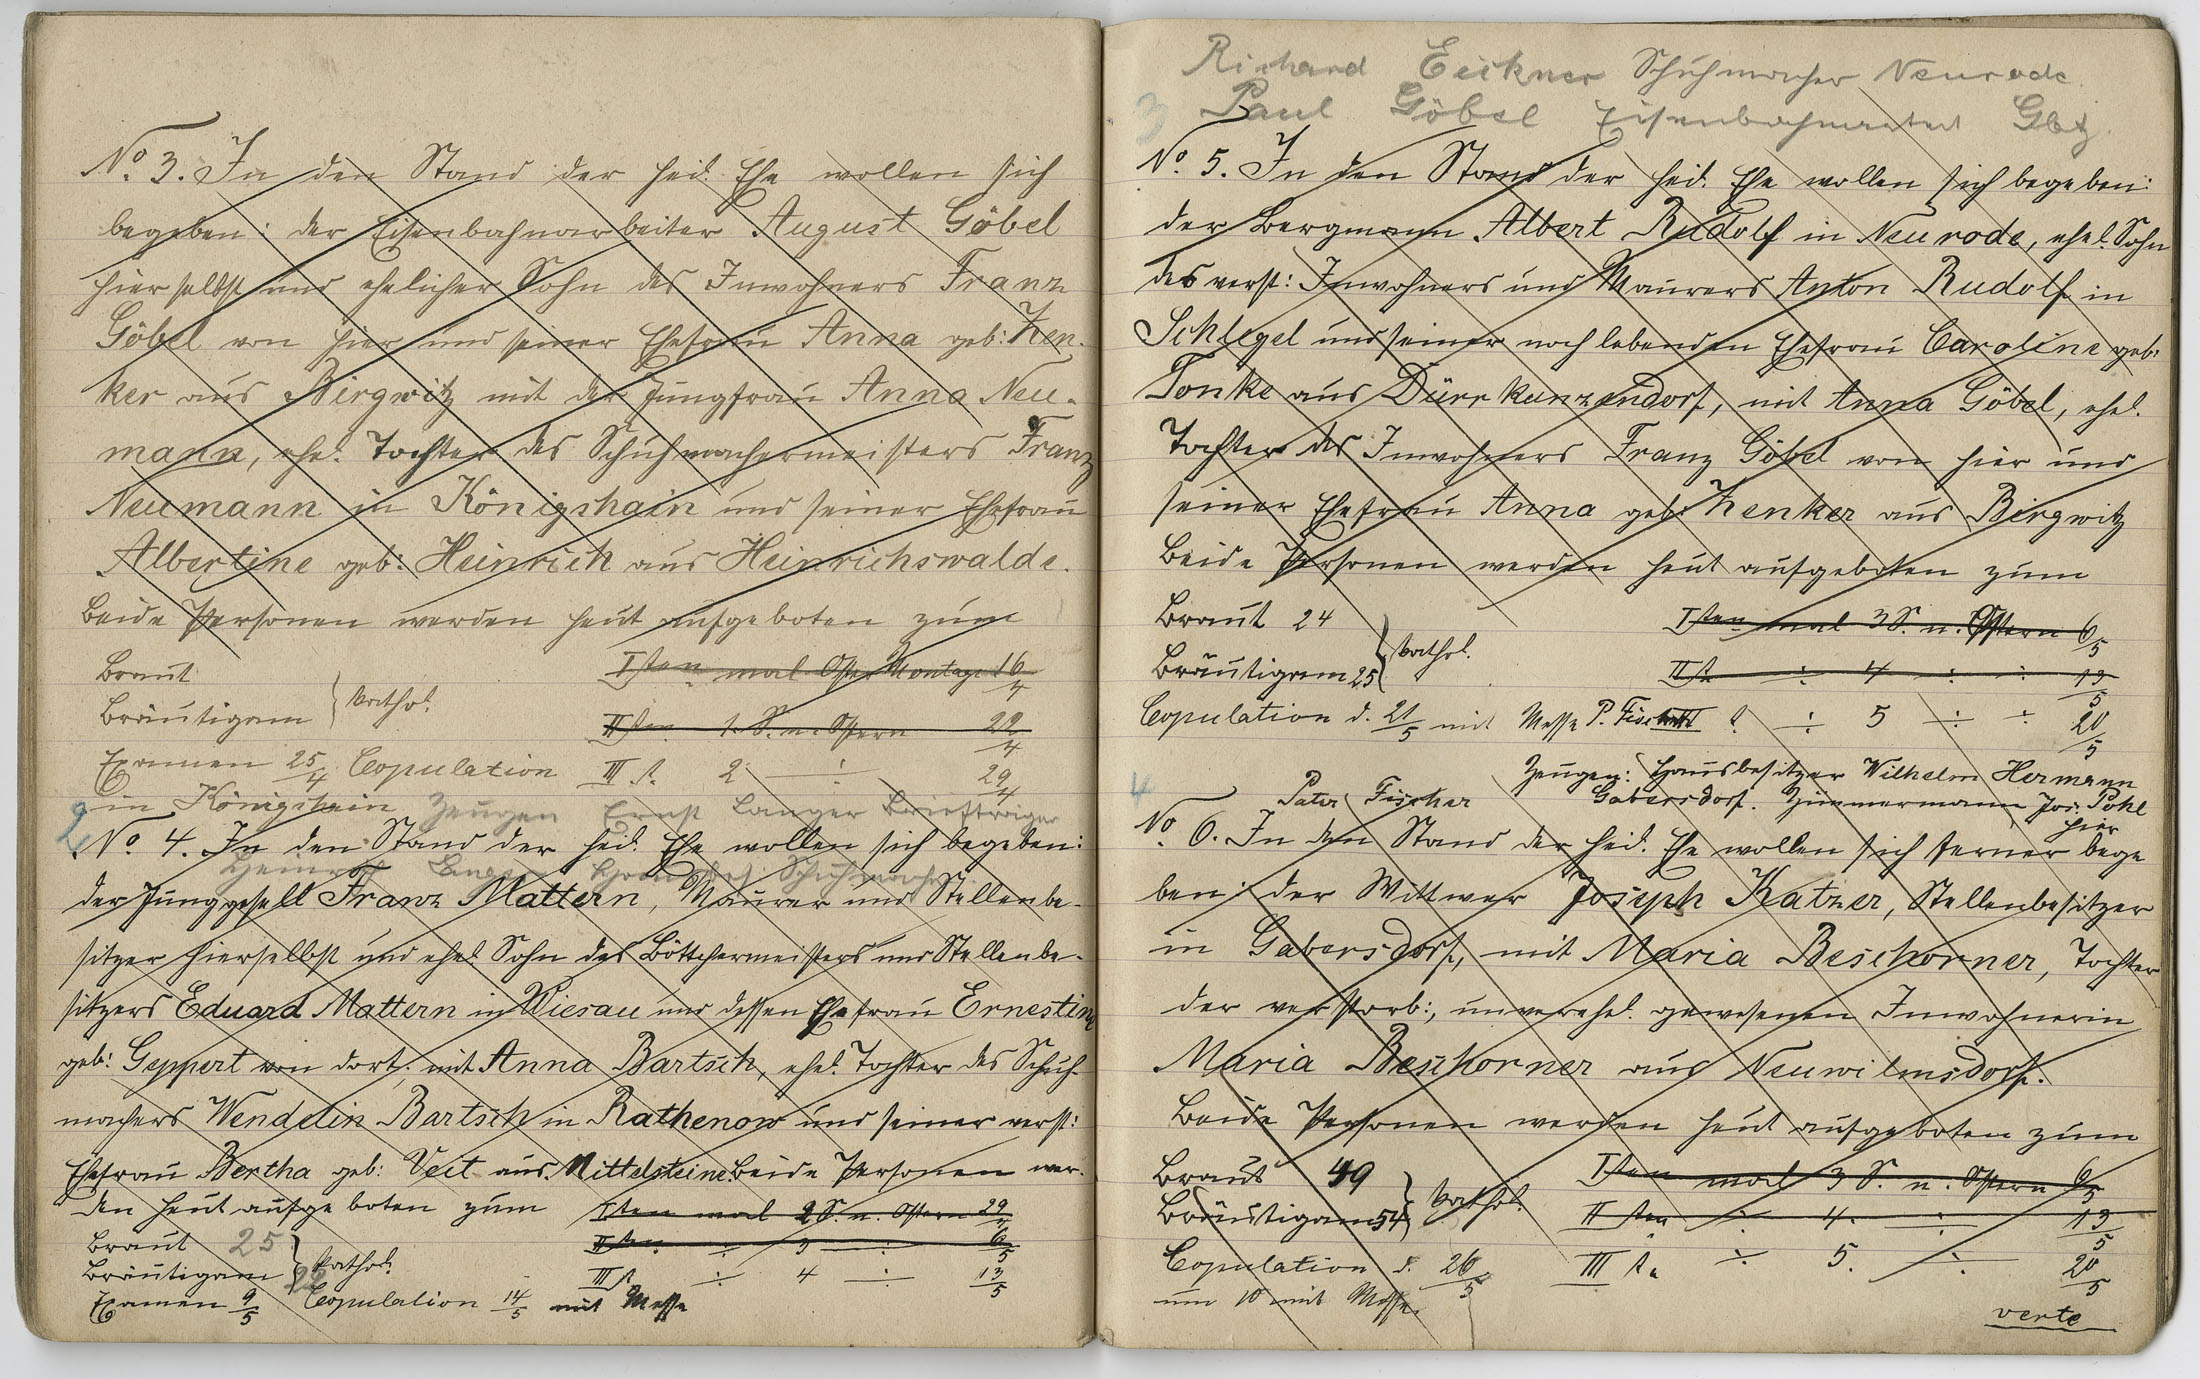 No. 3. In den Stand der heil. Ehe wollen sich
begeben: der Eisenbahnarbeiter August Göbel
hierselbst und ehelicher Sohn des Inwohners Franz
Göbel von hier und seiner Ehefrau Anna geb: Zen-
ker aus Birgwitz mit der Jungfrau Anna Neu-
mann, ehel. Tochter des Schuhmachermeisters Franz
Neumann in Königshain und seiner Ehefrau
Albertine geb: Heinrich aus Heinrichswalde.
Beide Personen werden heut aufgeboten zum
Braut
Bräutigam } kathol.
Isten mal Oster Montage 16/4
IIten 1. S. n. Ostern 22/4
Examen 25/4 Copulation III t. 2 ÷ 29/4
in Königshain Zeugen Ernst Langer Briefträger
2
No. 4. In den Stand der heil. Ehe wollen sich begeben:
Heinrich Schuhmacher
der Junggesell Franz Mattern, Maurer und Stellenbe-
sitzer hierselbst und ehel. Sohn des Böttchermeisters und Stellenbe-
sitzers Eduard Mattern in Wiesau und dessen Ehefrau Ernestine
geb: Geppert von dort, mit Anna Bartsch, ehel. Tochter des Schuh-
machers Wendelin Bartsch in Rathenow und seiner verst:
Ehefrau Bertha geb: Veit aus Mittelsteine. Beide Personen wer-
den heut aufgeboten zum Isten mal 2 S. n. Ostern 29/4
Braut 25
IIten ÷ 3 ÷ 6/5
Bräutigam 22 } kathol.
III t. ÷ 4 ÷ 13/5
Examen 9/5 Copulation 14/5 mit Messe
Richard Eickner Schuhmacher Neurode
3 Paul Göbel Eisenbahnarbeit Gbtz.
No. 5. In den Stand der heil. Ehe wollen sich begeben:
der Bergmann Albert Rudolf in Neurode, ehel. Sohn
des verst: Inwohners und Maurers Anton Rudolf in
Schlegel und seiner noch lebenden Ehefrau Caroline geb:
Tonke aus Dürrkunzendorf, mit Anna Göbel, ehel.
Tochter des Inwohners Franz Göbel von hier und
seiner Ehefrau Anna geb: Zenker aus Birgwitz
Beide Personen werden heut aufgeboten zum
Braut 24
Isten mal 3 S. n. Ostern 6/5
Bräutigam 25 } kathol.
II t. ÷ 4 ÷ ÷ 13/5
Copulation d. 21/5 mit Messe P. Fischer III t ÷ 5 ÷ ÷ 20/5
Zeugen: Hausbesitzer Wilhelm Hermann
4 Pater Fischer Gabersdorf. Zimmermann Jos. Pohl
hier
No. 6. In den Stand der heil. Ehe wollen sich ferner bege
ben: der Wittwer Joseph Katzer, Stellenbesitzer
in Gabersdorf, mit Maria Beschorner, Tochter
der verstorb:, unverehel. gewesenen Inwohnerin
Maria Beschorner aus Neuwilmsdorf.
Beide Personen werden heut aufgeboten zum
Braut 49
Isten mal 3 S. n. Ostern 6/5
Bräutigam 54 } kathol.
II ten ÷ 4. ÷ 13/5
Copulation d. 26/5 III t. ÷ 5. ÷ 20/5
um 10 mit Messe.
verte